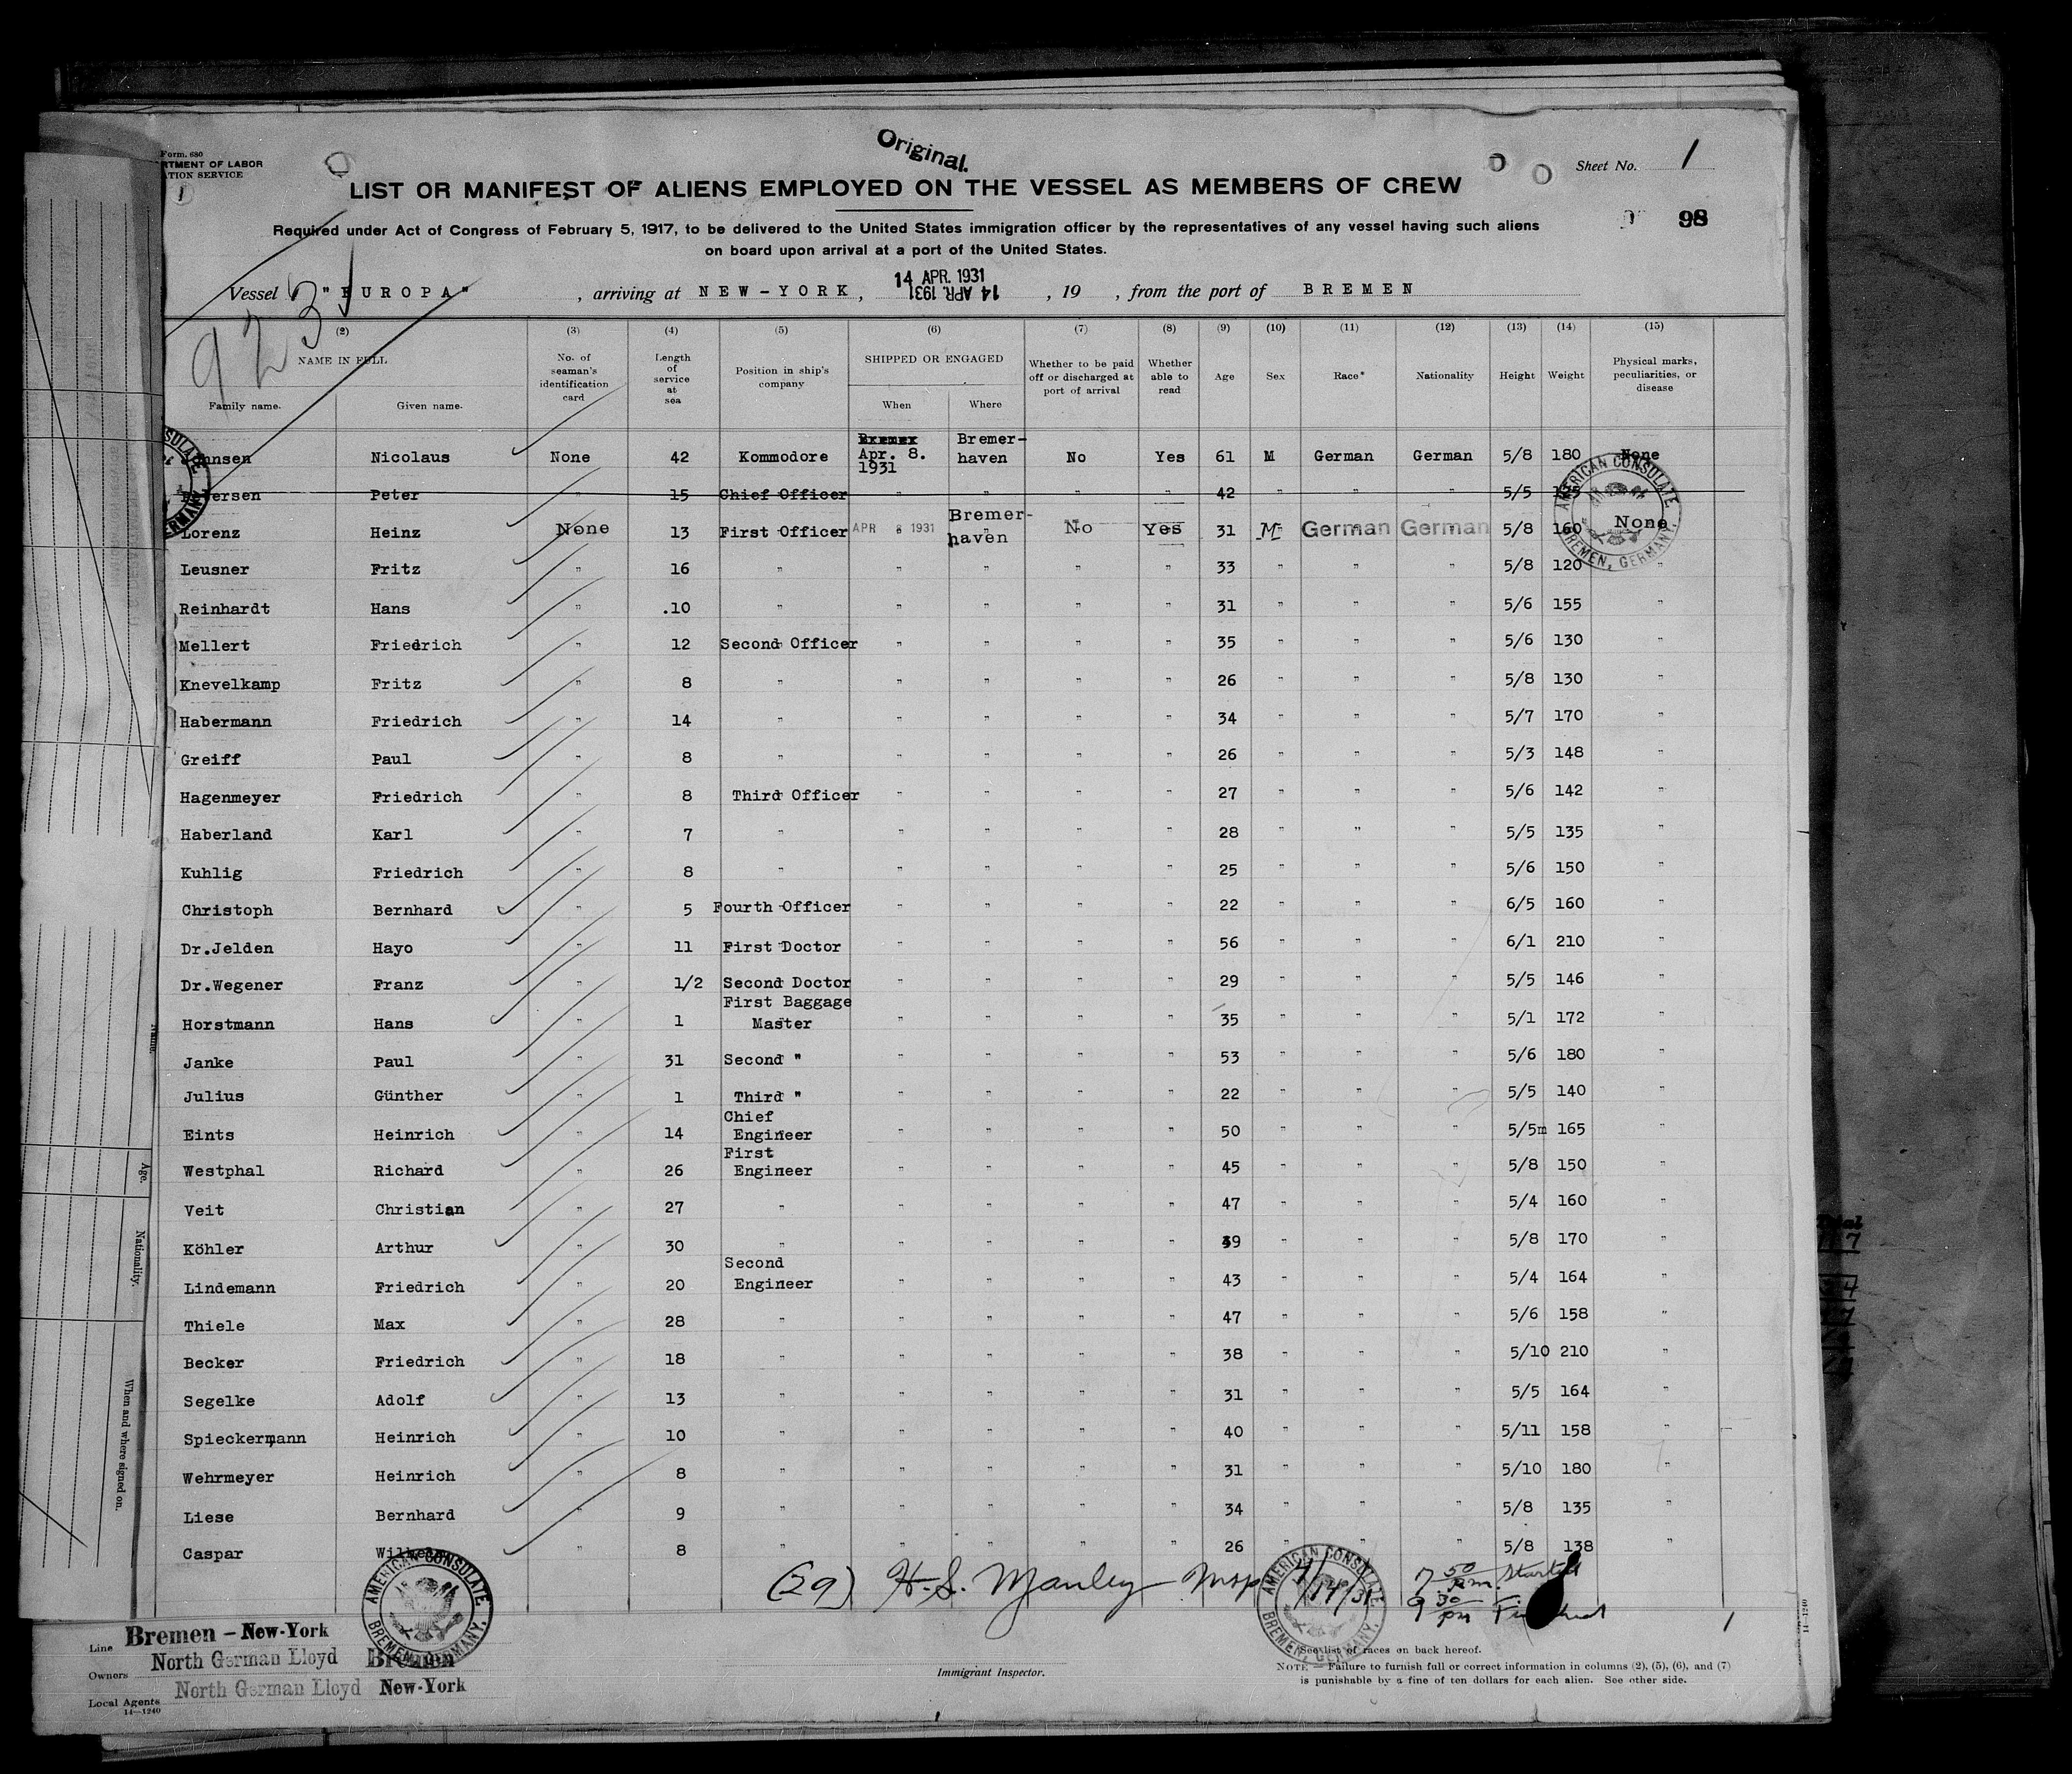 Original.
Form. 680
RTMENT OF LABOR
ATION SERVICE
Sheet No. 1
1
LIST OR MANIFEST OF ALIENS EMPLOYED ON THE VESSEL AS MEMBERS OF CREW
98
Required under Act of Congress of February 5, 1917, to be delivered to the United States immigration officer by the representatives of any vessel having such aliens
on board upon arrival at a port of the United States.
14 APR. 1931
Vessel "EUROPA" , arriving at NEW-YORK, 14 APR. 1931 , 19 , from the port of BREMEN
9231
(2) (3) (4) (5) (6) (7) (8) (9) (10) (11) (12) (13) (14) (15)
NAME IN FULL No. of seaman's identification card Length of service at sea Position in ship's company SHIPPED OR ENGAGED Whether to be paid off or discharged at port of arrival Whether able to read Age Sex Race* Nationality Height Weight Physical marks, peculiarities, or disease
Family name. Given name. When Where
Johnsen Nicolaus None 42 Kommodore Apr. 8. 1931 Bremer-haven No Yes 61 M German German 5/8 180 None
Petersen Peter " 15 Chief Officer " " " " 42 " " " 5/5
Lorenz Heinz None 13 First Officer APR 8 1931 Bremer-haven No Yes 31 M German German 5/8 160 None
Leusner Fritz " 16 " " " " " 33 " " " 5/8 120 "
Reinhardt Hans " .10 " " " " " 31 " " " 5/6 155 "
Mellert Friedrich " 12 Second Officer " " " " 35 " " " 5/6 130 "
Knevelkamp Fritz " 8 " " " " " 26 " " " 5/8 130 "
Habermann Friedrich " 14 " " " " " 34 " " " 5/7 170 "
Greiff Paul " 8 " " " " " 26 " " " 5/3 148 "
Hagenmeyer Friedrich " 8 Third Officer " " " " 27 " " " 5/6 142 "
Haberland Karl " 7 " " " " " 28 " " " 5/5 135 "
Kuhlig Friedrich " 8 " " " " " 25 " " " 5/6 150 "
Christoph Bernhard " 5 Fourth Officer " " " " 22 " " " 6/5 160 "
Dr.Jelden Hayo " 11 First Doctor " " " " 56 " " " 6/1 210 "
Dr.Wegener Franz " 1/2 Second Doctor " " " " 29 " " " 5/5 146 "
Horstmann Hans " 1 First Baggage Master " " " " 35 " " " 5/1 172 "
Janke Paul " 31 Second " " " " " 53 " " " 5/6 180 "
Julius Günther " 1 Third " " " " " 22 " " " 5/5 140 "
Eints Heinrich " 14 Chief Engineer " " " " 50 " " " 5/5m 165 "
Westphal Richard " 26 First Engineer " " " " 45 " " " 5/8 150 "
Veit Christian " 27 " " " " " 47 " " " 5/4 160 "
Köhler Arthur " 30 " " " " " 49 " " " 5/8 170 "
Lindemann Friedrich " 20 Second Engineer " " " " 43 " " " 5/4 164 "
Thiele Max " 28 " " " " " 47 " " " 5/6 158 "
Becker Friedrich " 18 " " " " " 38 " " " 5/10 210 "
Segelke Adolf " 13 " " " " " 31 " " " 5/5 164 "
Spieckermann Heinrich " 10 " " " " " 40 " " " 5/11 158 "
Wehrmeyer Heinrich " 8 " " " " " 31 " " " 5/10 180 "
Liese Bernhard " 9 " " " " " 34 " " " 5/8 135 "
Caspar Wilhelm " 8 " " " " " 26 " " " 5/8 138 "
(29) H.S. Manley Insp 4/14/31 7 50 pm. Started
9 30 pm Finished
1
AMERICAN CONSULATE
BREMEN, GERMANY.
AMERICAN CONSULATE
BREMEN, GERMANY.
AMERICAN CONSULATE
BREMEN, GERMANY.
Line Bremen - New-York
Owners North German Lloyd Bremen
Local Agents North German Lloyd New-York
14—1240
Immigrant Inspector.
See list of races on back hereof.
NOTE — Failure to furnish full or correct information in columns (2), (5), (6), and (7)
is punishable by a fine of ten dollars for each alien. See other side.
14—1240
Name.
Age.
Nationality.
When and where signed on.